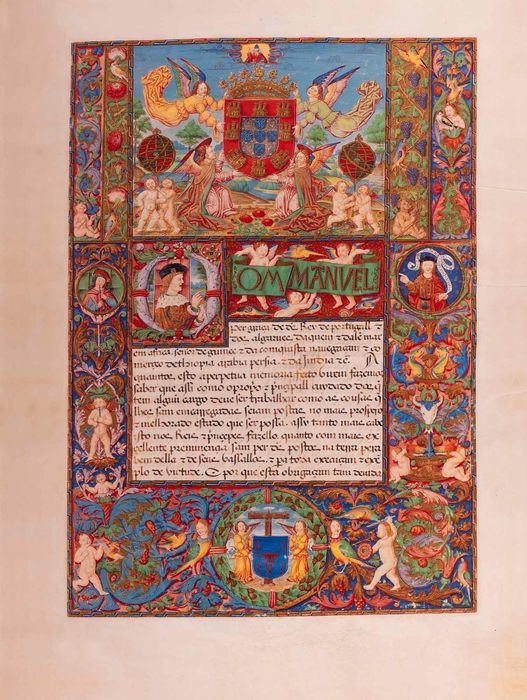 DOM MANVEL
per graça de ds Rey de portugall z
dos algarues daquem z dalē mar
em africa, señor de guinee z da comquista nauegaçam z co
mercio dethiopia arabia persia z da Jndia zc̄. A
quantos esta perpetua memoria feito fazemos
saber que assi como o proprio z prinçipall cuydado daq̄
tem alguū cargo deue ser trabalhar como as cousas q̄
lhes sam encarregadas seiam postas no mais prospero
z melhorado estado que ser possa. assy tanto mais cabe
isto nos Reis z prinçepes fazello, quanto com mais ex
cellente preminençia sam per ds postos na terra pera
bem della z de seus vassallos, z pera toda execuçam z exē
plo de virtude. E por que esta obrigaçam tam deuida